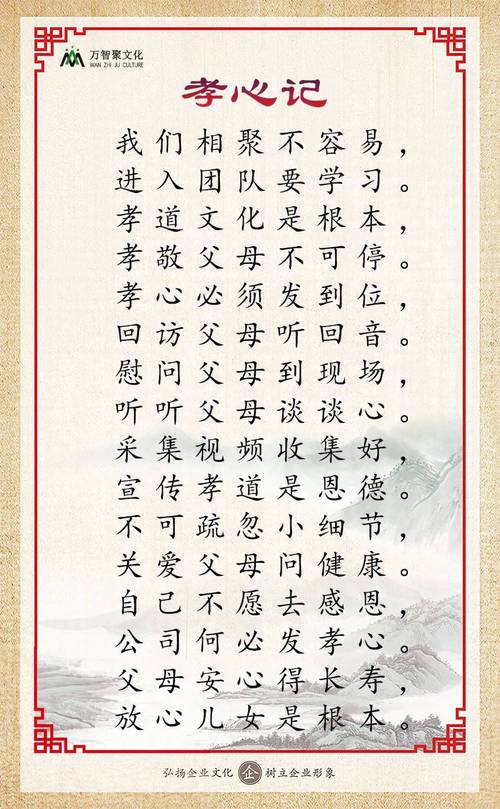 万智聚文化
WAN ZHI JU CULTURE
孝心记
我们相聚不容易，
进入团队要学习。
孝道文化是根本，
孝敬父母不可停。
孝心必须发到位，
回访父母听回音。
慰问父母到现场，
听听父母谈谈心。
采集视频收集好，
宣传孝道是恩德。
不可疏忽小细节，
关爱父母问健康。
自己不愿去感恩，
公司何必发孝心。
父母安心得长寿，
放心儿女是根本。
弘扬企业文化 企 树立企业形象